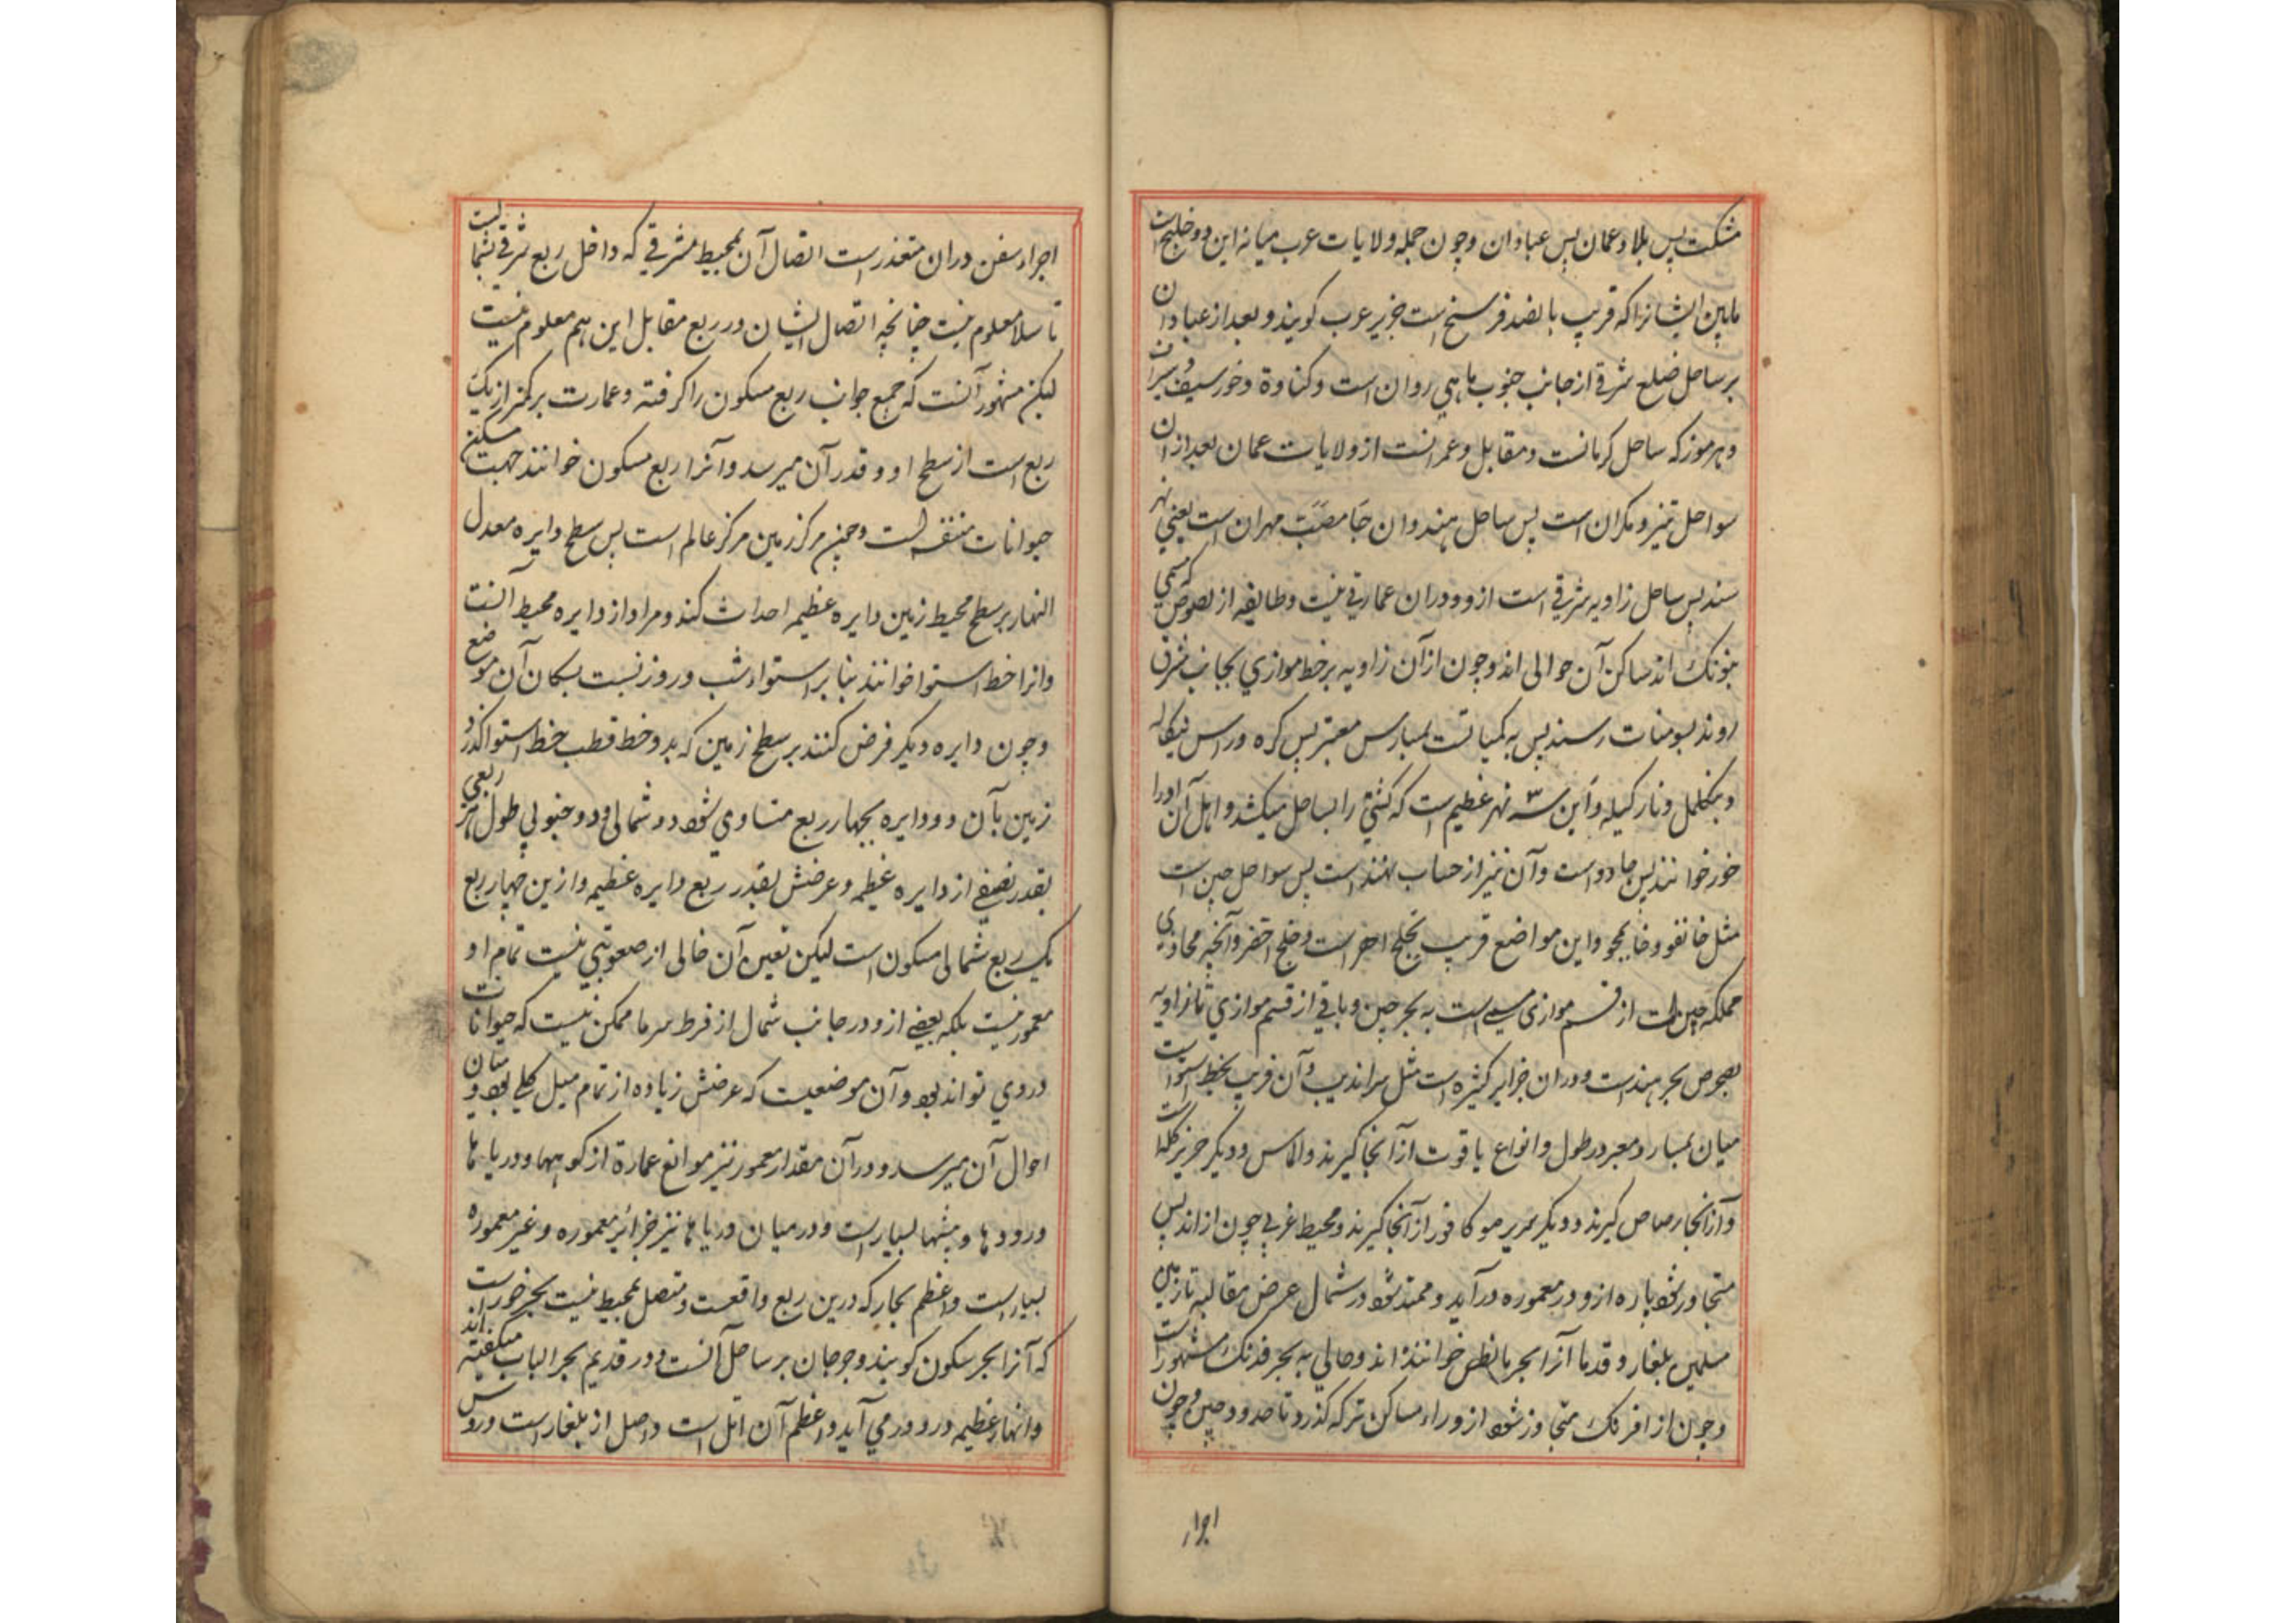 مشکت پس بلاد عمان پس عبادان وچون جمله ولایات عرب میانه این دو خلیج است
مابین ایشانرا که قریب پانصد فرسخ است جزیره عرب کویند و بعد از عبادان
بر ساحل ضلع شرقی از جانب جنوب ماهی روان است وکناوة وخور سیف و سیراف
وهرموز که ساحل کرمانست ومقابل وعمرانست از ولایات عمان بعد از ان
سواحل تیز و مکران است پس ساحل هند وان جا مصبّ مهران است یعنی نهر
سند پس ساحل زاویه شرقی است ازو ودران عمارتی نیست وطایفه از لصوص که مسمی
اند ساکن آن حوالی اند وچون از آن زاویه بر خط موازی بجانب شرق
روند بسومنات رسند پس به کمپایت پس معبر پس کره وراس
و وناركیله واین سه نهر عظیم است که کشتی را بساحل میکشد واهل آن اورا
خور خوانند پس جاده است وآن نیز از حساب هند است پس سواحل چین است
مثل خانفو و خانجو واین مواضع قریب بخلیج احمر است وخلیج اخضر وآنچه محاذی
مملکه چین است از قسم موازی مسمی است به بحر چین وباقی از قسم موازی تا زاویه
ببحر هند است ودران جزایر کثیره است مثل سراندیب وآن قریب بخط استواست
میان ومعبر در طول وانواع یاقوت از آنجا کیرند والماس ودیکر جزیره کله است
واز آنجا رصاص کیرند ودیکر سریره وکافور از آنجا کیرند ومحیط غربی چون از اندلس
متجاوز شود پاره ازو در معموره درآید وممتد شود در شمال عرض تا زمین
مسلمین بلغار وقدما آنرا بحر خوانده اند وحالی به بحر فرنک مشهورست
وچون از افرنک متجاوز شود از وراء مساکن ترکه کذرد تا حدود چین وچون
اجراء
اجراء سفن دران متعذر است اتصال آن بمحیط مشرقی که داخل ربع شرقی شمالیست
تا معلوم نیست چنانچه اتصال ایشان در ربع مقابل این هم معلوم نیست
لیکن مشهور آنست که جمیع جوانب ربع مسکون را کرفته وعمارت بر کمتر از یک
ربع است از سطح او وقدر آن میرسد وآنرا ربع مسکون خوانند جهت مسکن
حیوانات متنفسه است وچون مرکز زمین مرکز عالم است پس سطح دایره معدل
النهار بر سطح محیط زمین دایره عظیمه احداث کند ومراد از دایره محیط آنست
وانرا خط استوا خوانند بنا بر استواء شب وروز نسبت بسکان آن موضع
وچون دایره دیکر فرض کنند بر سطح زمین که بدو خط قطب خط استوا کذرد
زمین بآن دو دایره بچهار ربع متساوی شود دو شمالی ودو جنوبی طول هر ربعی
بقدر نصفی از دایره عظیمه وعرضش بقدر ربع دایره عظیمه وازین چهار ربع
یک ربع شمالی مسکون است لیکن تعین آن خالی از صعوبتی نیست تمام او
معمور نیست بلکه بعضی ازو در جانب شمال از فرط سرما ممکن نیست که حیوانات
دروی تواند بود وآن موضعیست که عرضش زیاده از تمام میل کلی بود
احوال آن میرسد ودرآن مقدار معمور نیز موانع عمارة از کوهها ودریاها
ورودها وبیشها بسیار است ودر میان دریاها نیز جزائر معموره وغیر معموره
بسیار است واعظم بحار که درین ربع واقعست ومتصل بمحیط نیست بحر خزرست
که آنرا بحر سکون کویند وجرجان بر ساحل آنست ودر قدیم بحر الباب میکفته اند
وانهار عظیمه درو درمی آید واعظم آن اتل است واصل از بلغار است وروس